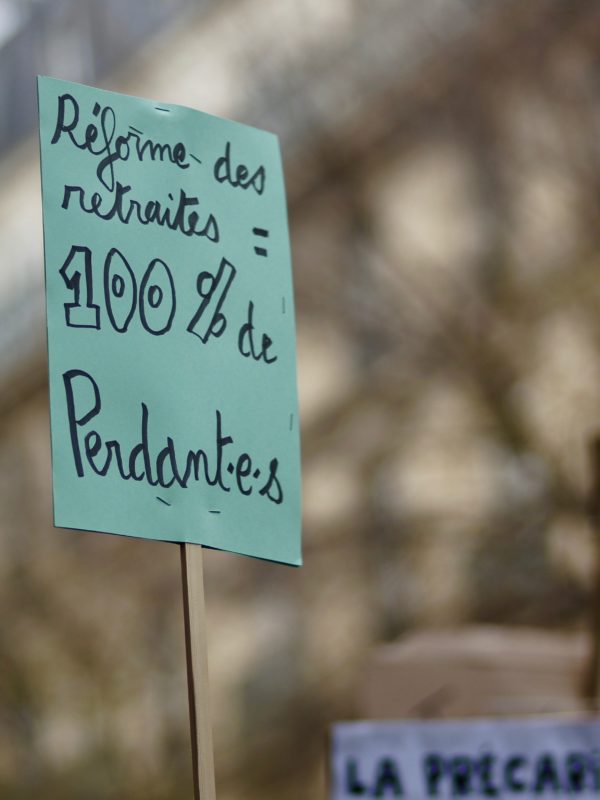 Réforme des
retraites =
100% de
Perdant·e·s
LA PRÉCARI